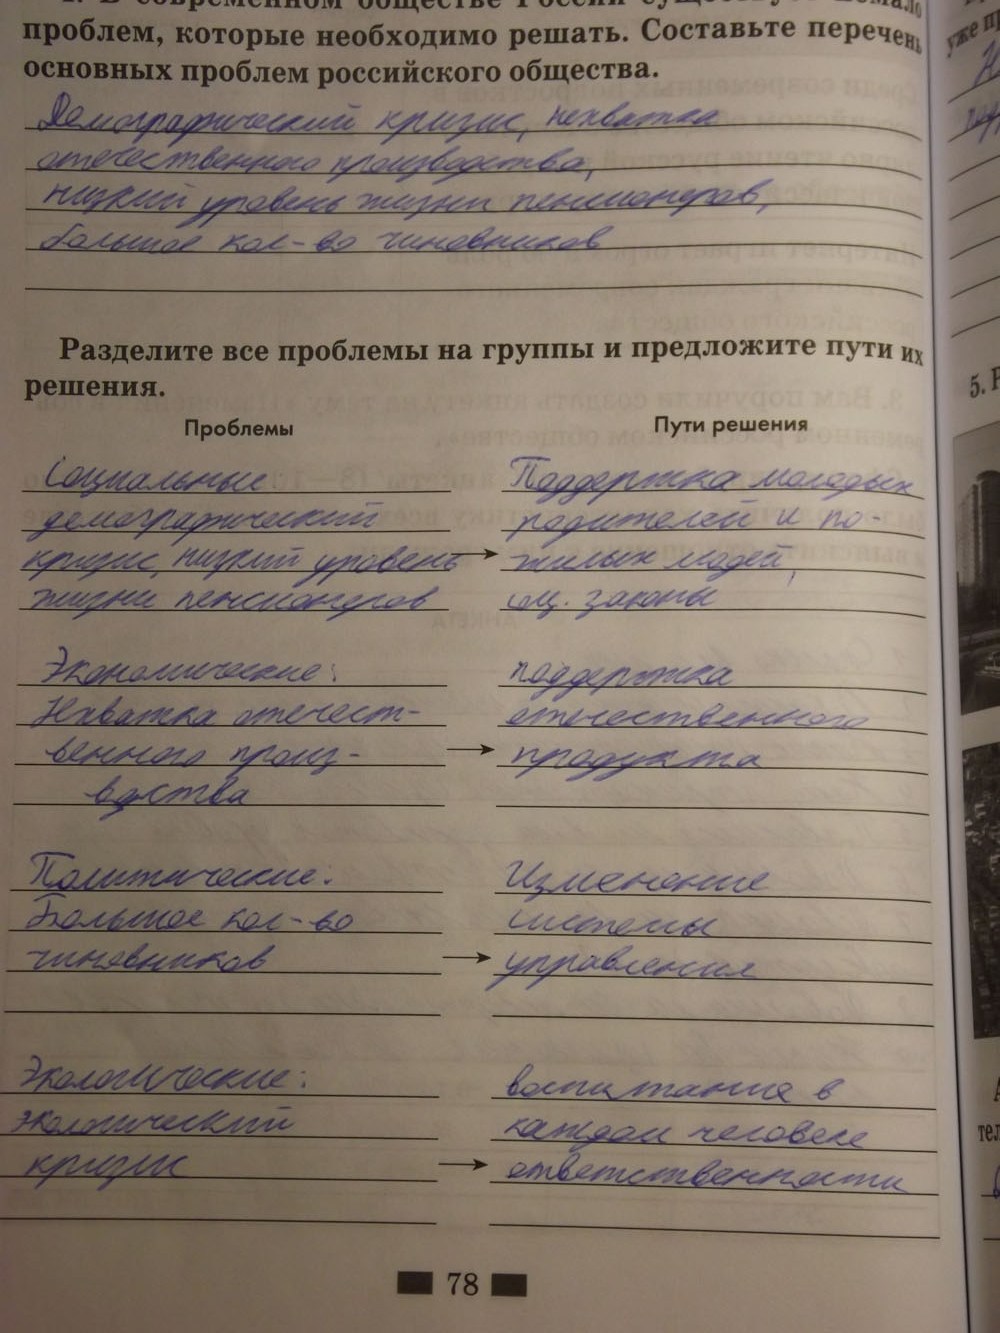 В современном обществе России существует немало
проблем, которые необходимо решать. Составьте перечень
основных проблем российского общества.
Демографический кризис, нехватка
отечественного производства,
низкий уровень жизни пенсионеров,
большое кол-во чиновников
Разделите все проблемы на группы и предложите пути их
решения.
Проблемы
Пути решения
Социальные
демографический
кризис, низкий уровень
жизни пенсионеров
Поддержка молодых
родителей и по-
жилых людей,
соц. законы
Экономические:
Нехватка отечест-
венного произ-
водства
поддержка
отечественного
продукта
Политические:
Большое кол-во
чиновников
Изменение
системы
управления
Экологические:
экологический
кризис
воспитание в
каждом человеке
ответственности
78
уже
5.